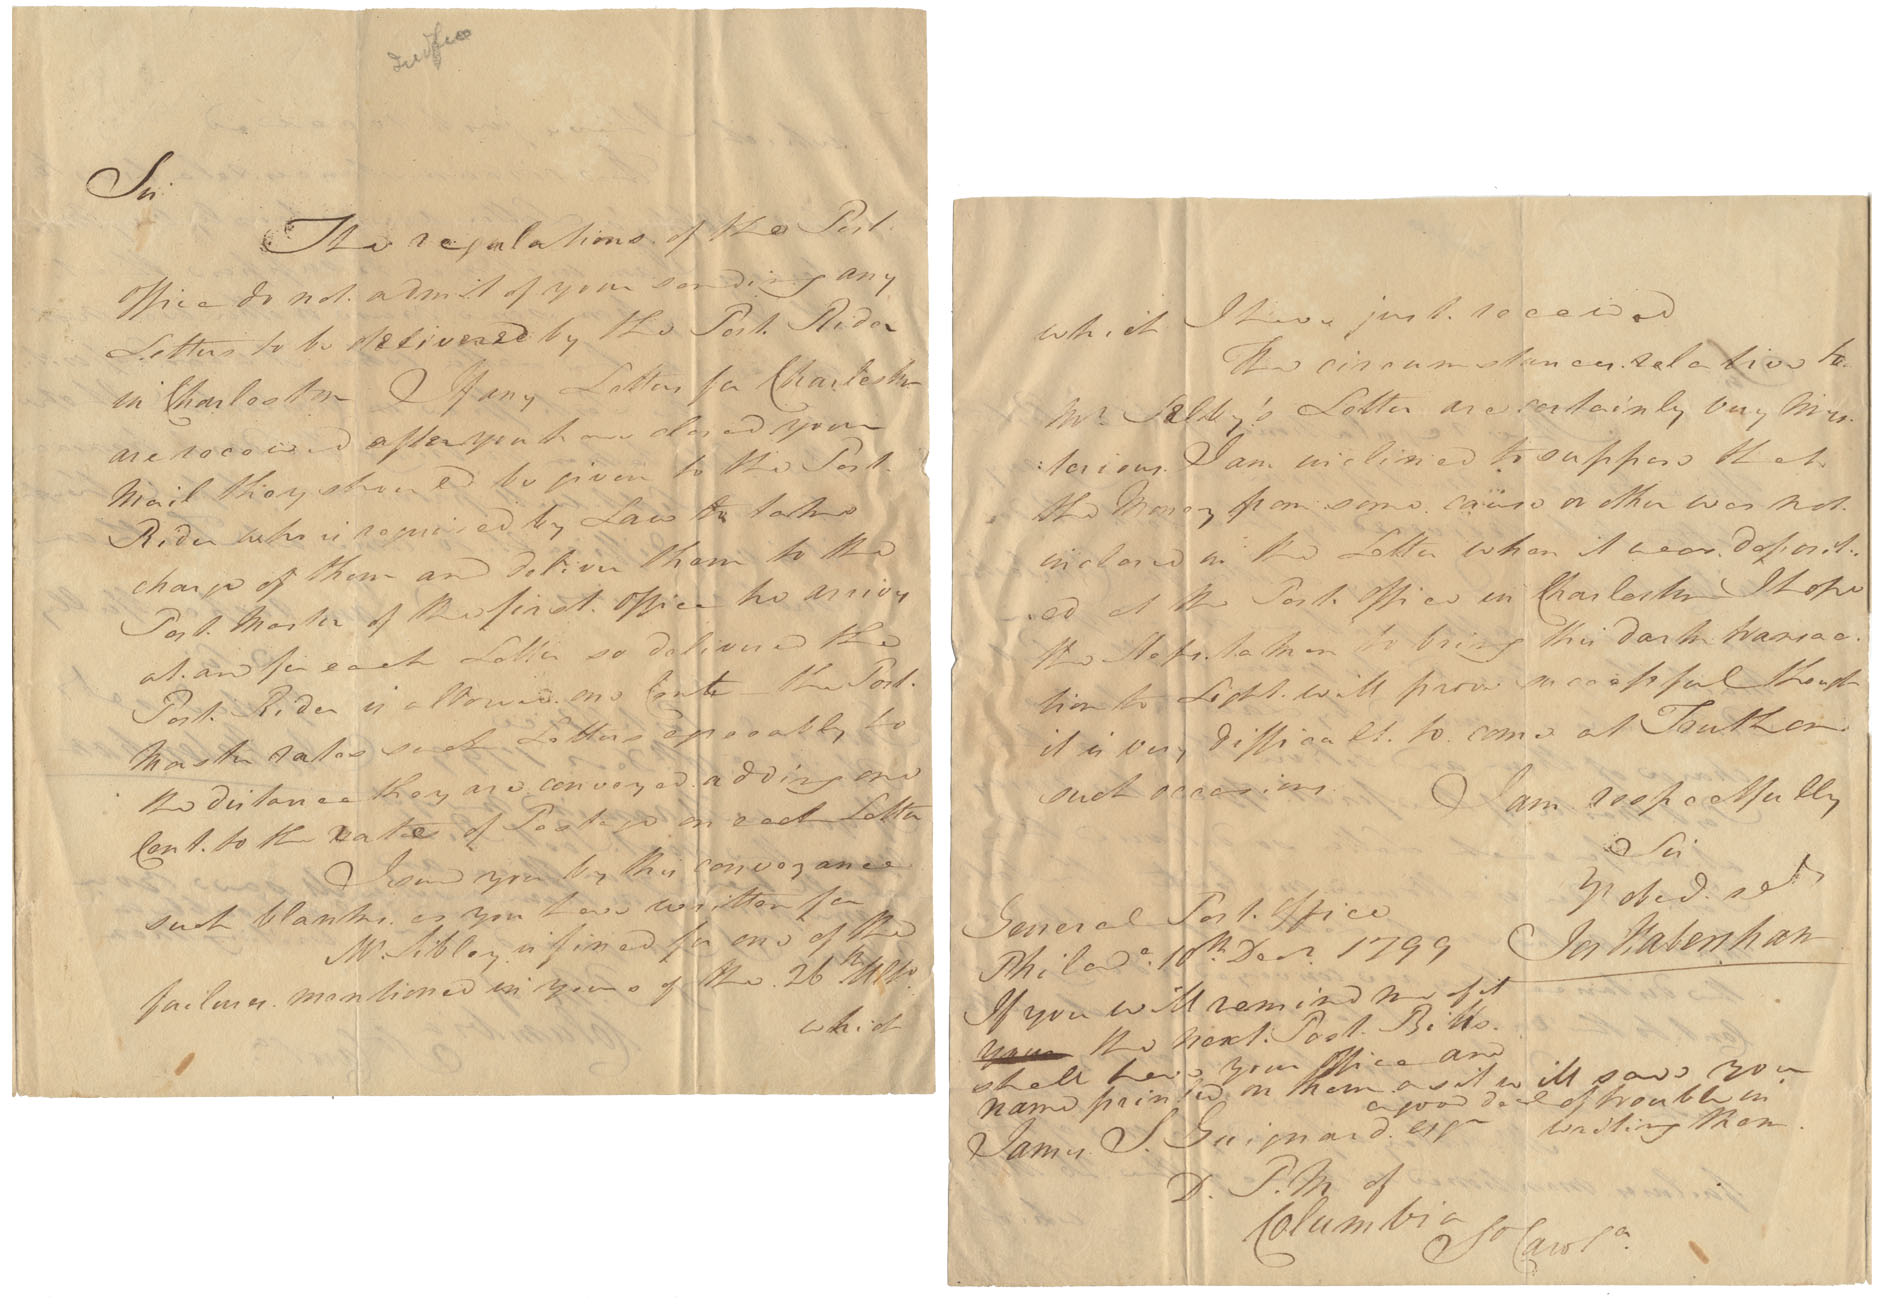 Sir
The regulations of the Post.
office do not. admit of your sending any
Letters to be delivered by the Post. Rider
in Charleston If any Letters for Charleston
are received after you have closed your
Mail they should be given to the Post.
Rider who is required by Law to take
charge of them and deliver them to the
Post. Master of the first. office he arrives
at. and for each Letter so delivered the
Post. Rider is allowed. one Cent. the Post.
Master rates such Letters agreeably to
the distance they are conveyed. adding one
Cent. to the rates of Postage on each Letter
I send you by this conveyance
such blanks. as you have written for
Mr. Sibley is fined for one of the
failures. mentioned in yours of the. 26th Ulto.
which
which I have just. received
The circumstances. relative to.
Mr. Selby's Letter are certainly very Mys.
:terious. I am inclined to suppose that
the Money from some. cause or other was not.
inclosed in the Letter when it was. deposit.
.ed at the Post. office in Charleston I hope
the steps. taken to bring this dark transac.
tion to Light. will prove successful though
it is very difficult. to. come at Truth on.
such occasions.
I am respectfully
Sir
Yr obed. sert
Jos Habersham
General Post. office
Philada. 10th. Decr. 1799
If you will remind me of it
the next. Post. Bills.
shall have your office and
name printed on them as it will save you
a good deal of trouble in
writing them.
James S. Guignard. esqr
D. P. M of
Columbia
So Carola.